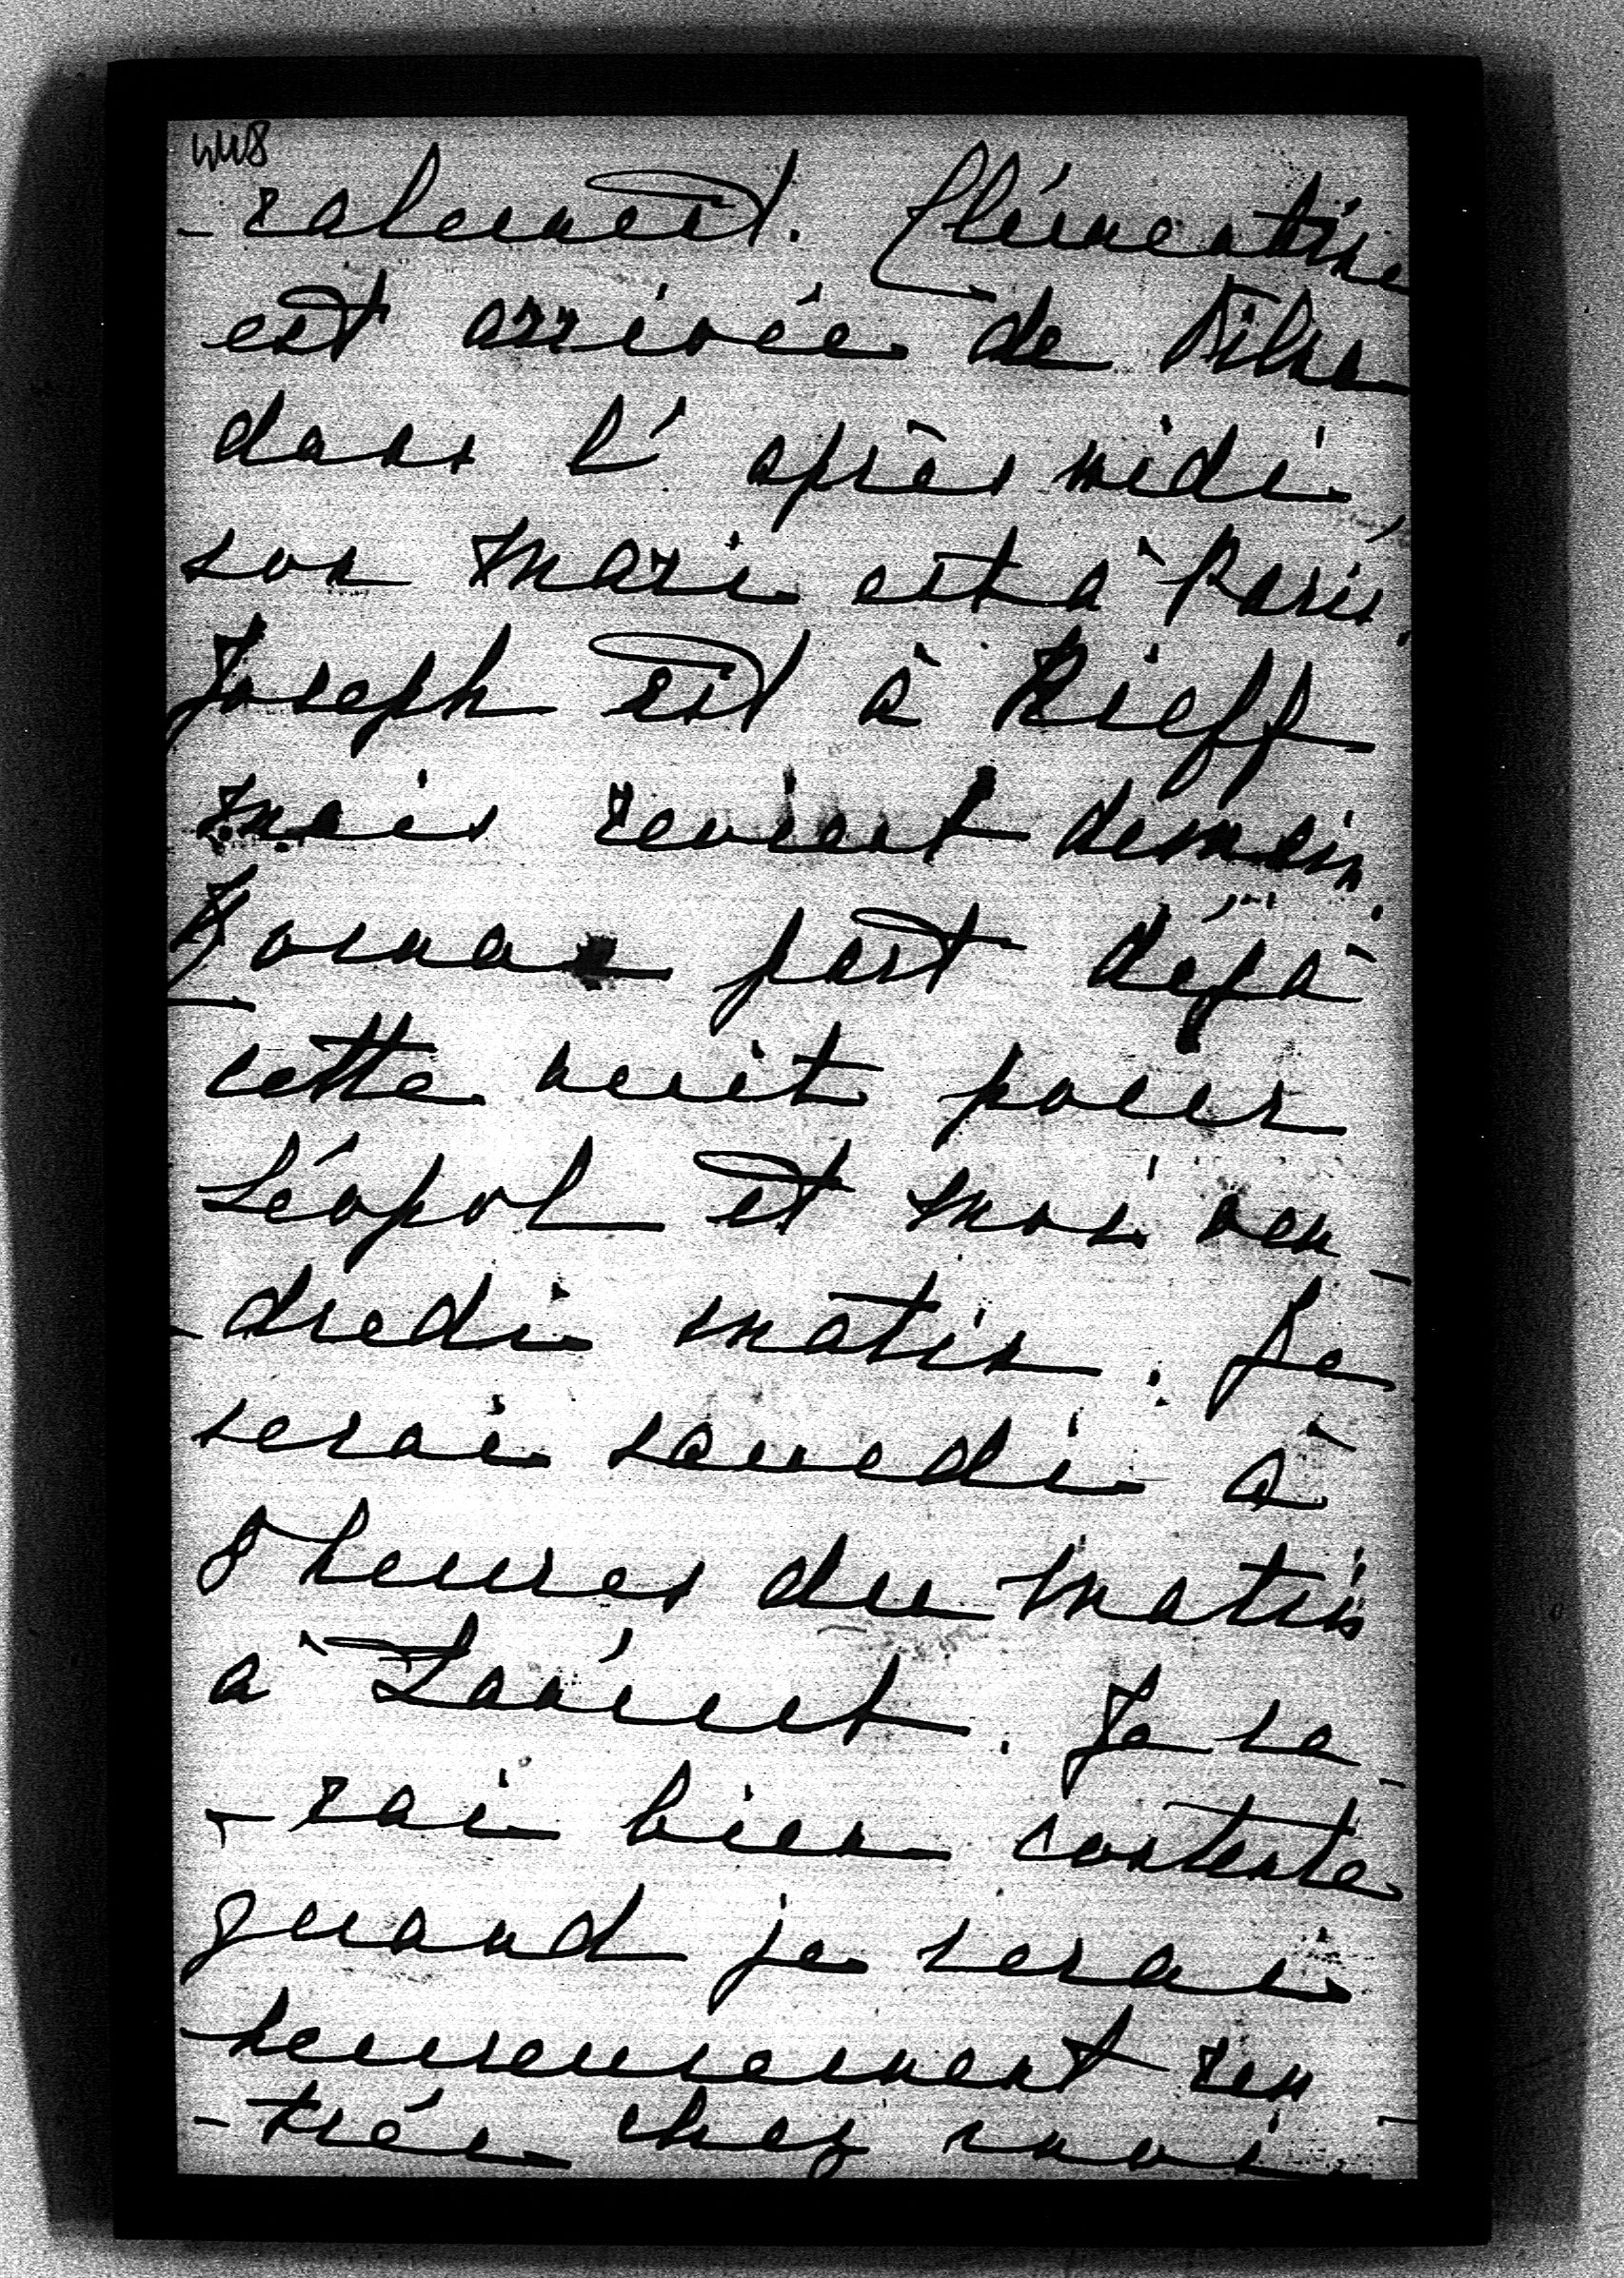 448
-ralement. Clémentine
est arrivée de
dans l'après midi,
son mari est à Paris.
Joseph est à Kieff
mais revient demain.
part déjà
cette nuit pour
Léopol et moi ven-
-dredi matin. Je
serai samedi à
8 heures du matin
à Łańcut. Je se-
-rai bien contente
quand je serai
heureusement ren-
-trée chez moi